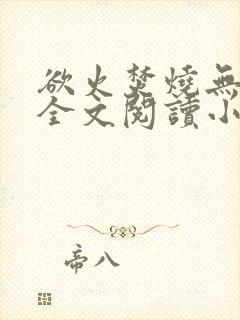 欲火焚燒無
全文閱讀小
帝八